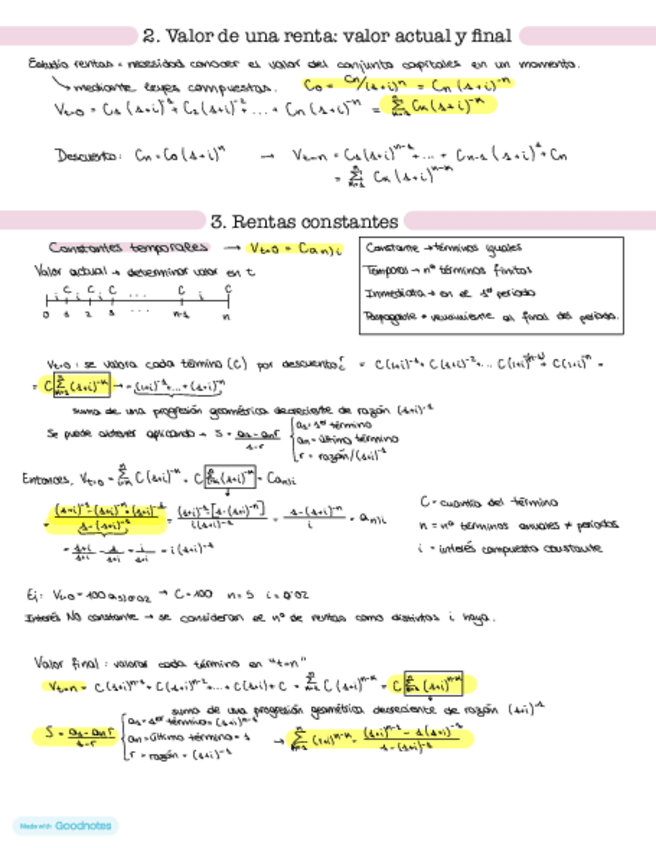 2. Valor de una renta: valor actual y final
Estudio rentas = necesidad conocer el valor del conjunto capitales en un momento.
↳ mediante leyes compuestas. C₀ = Cn/(1+i)ⁿ = Cn (1+i)⁻ⁿ
Vt=0 = C₁(1+i)⁻¹ + C₂(1+i)⁻² + ... + Cn(1+i)⁻ⁿ =
Descuento: Cn = C₀(1+i)ⁿ → Vt=n = C₁(1+i)ⁿ⁻¹ + ... + Cn-1 (1+i)¹ + Cn
3. Rentas constantes
Constantes temporales → Vt=0 = C an⌉i
Constante → términos iguales
Temporal → nº términos finitos
Inmediata → en el 1er periodo
al final del periodo.
Valor actual → determinar valor en t
C C C C C
0 1 2 3 ... n-1 n
Vt=0 : se valora cada término (C) por descuento
suma de una progresión geométrica decreciente de razón (1+i)⁻¹
Se puede obtener aplicando → S = a₁ - an r / 1-r
a₁ = 1er término
an = último término
r = razón/(1+i)⁻¹
Entonces, Vt=0 =
C = cuantía del término
n = nº términos anuales ≠ periodos
i = interés compuesto constante
Ej: Vt=0 = 100 a5⌉0'02 → C=100 n=5 i=0'02
Interés NO constante → se consideran el nº de rentas como distintos i haya.
Valor final: valorar cada término en "t=n"
Vt=n = C(1+i)ⁿ⁻¹ + C(1+i)ⁿ⁻² + ... + C(1+i) + C
suma de una progresión geométrica decreciente de razón (1+i)⁻¹
S = a₁ - an r / 1-r
a₁ = 1er término = (1+i)ⁿ⁻¹
an = último término = 1
r = razón = (1+i)⁻¹
Made with Goodnotes